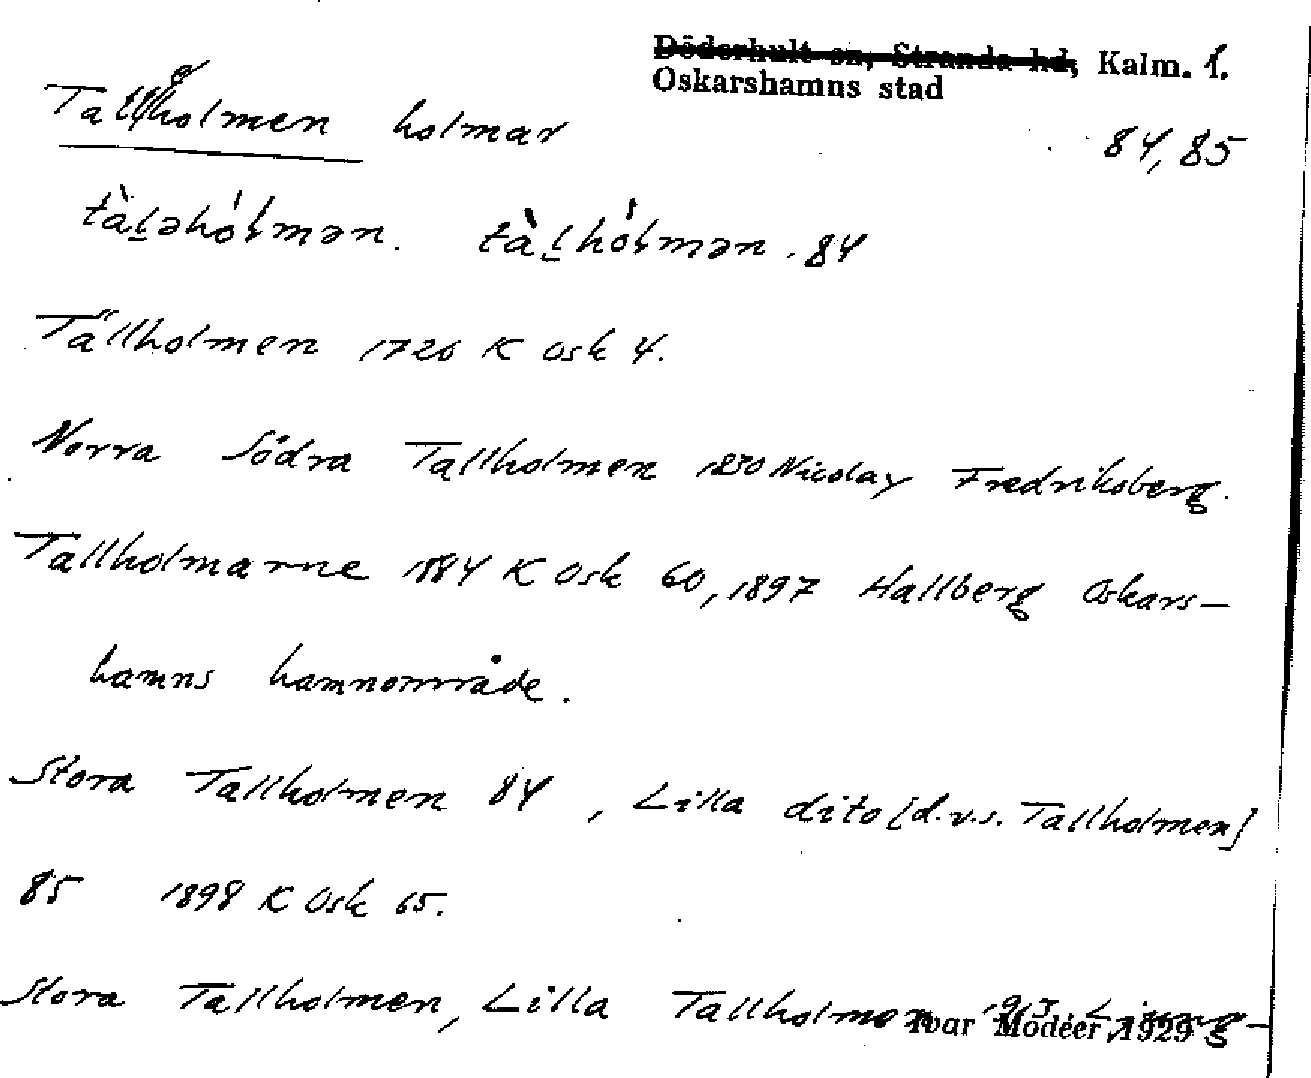 Döderhult sn, Stranda hd, Kalm. l.
Oskarshamns stad
Tallholmen holmar 84, 85
tàḻəhólmən. tàḻhólmən. 84
Tällholmen 1726 K Osk 4.
Norra Södra Tallholmen 1850 Nicolay Fredriksberg.
Tallholmarne 1884 K Osk 60, 1897 Hallberg Oskars-
hamns hamnområde.
Stora Tallholmen 84, Lilla dito [d.v.s. Tallholmen]
85 1898 K Osk 65.
Stora Tallholmen, Lilla Tallholmen
Ivar Modéer, 1929